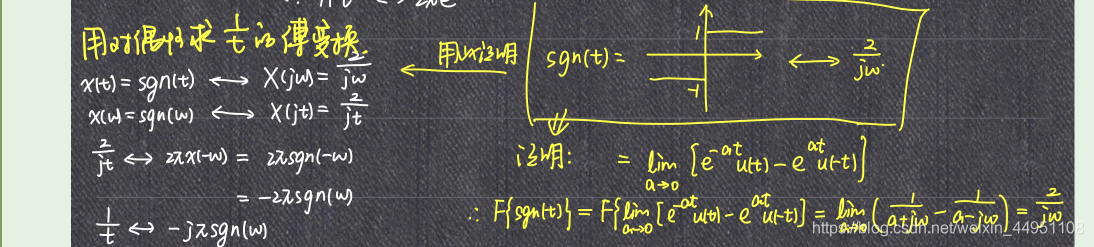 用对偶性求 1/t 的傅变换.
x(t) = sgn(t) ↔ X(jω) = 2/jω
x(ω) = sgn(ω) ↔ X(jt) = 2/jt
2/jt ↔ 2πx(-ω) = 2πsgn(-ω)
= -2πsgn(ω)
1/t ↔ -jπsgn(ω)
用以证明
sgn(t) = 1 -1 ↔ 2/jω.
证明: = lim a→0 [e^-at u(t) - e^at u(-t)]
∴ F{sgn(t)} = F{lim a→0 [e^-at u(t) - e^at u(-t)]} = lim a→0 (1/a+jω - 1/a-jω) = 2/jω
https://blog.csdn.net/weixin_44951108